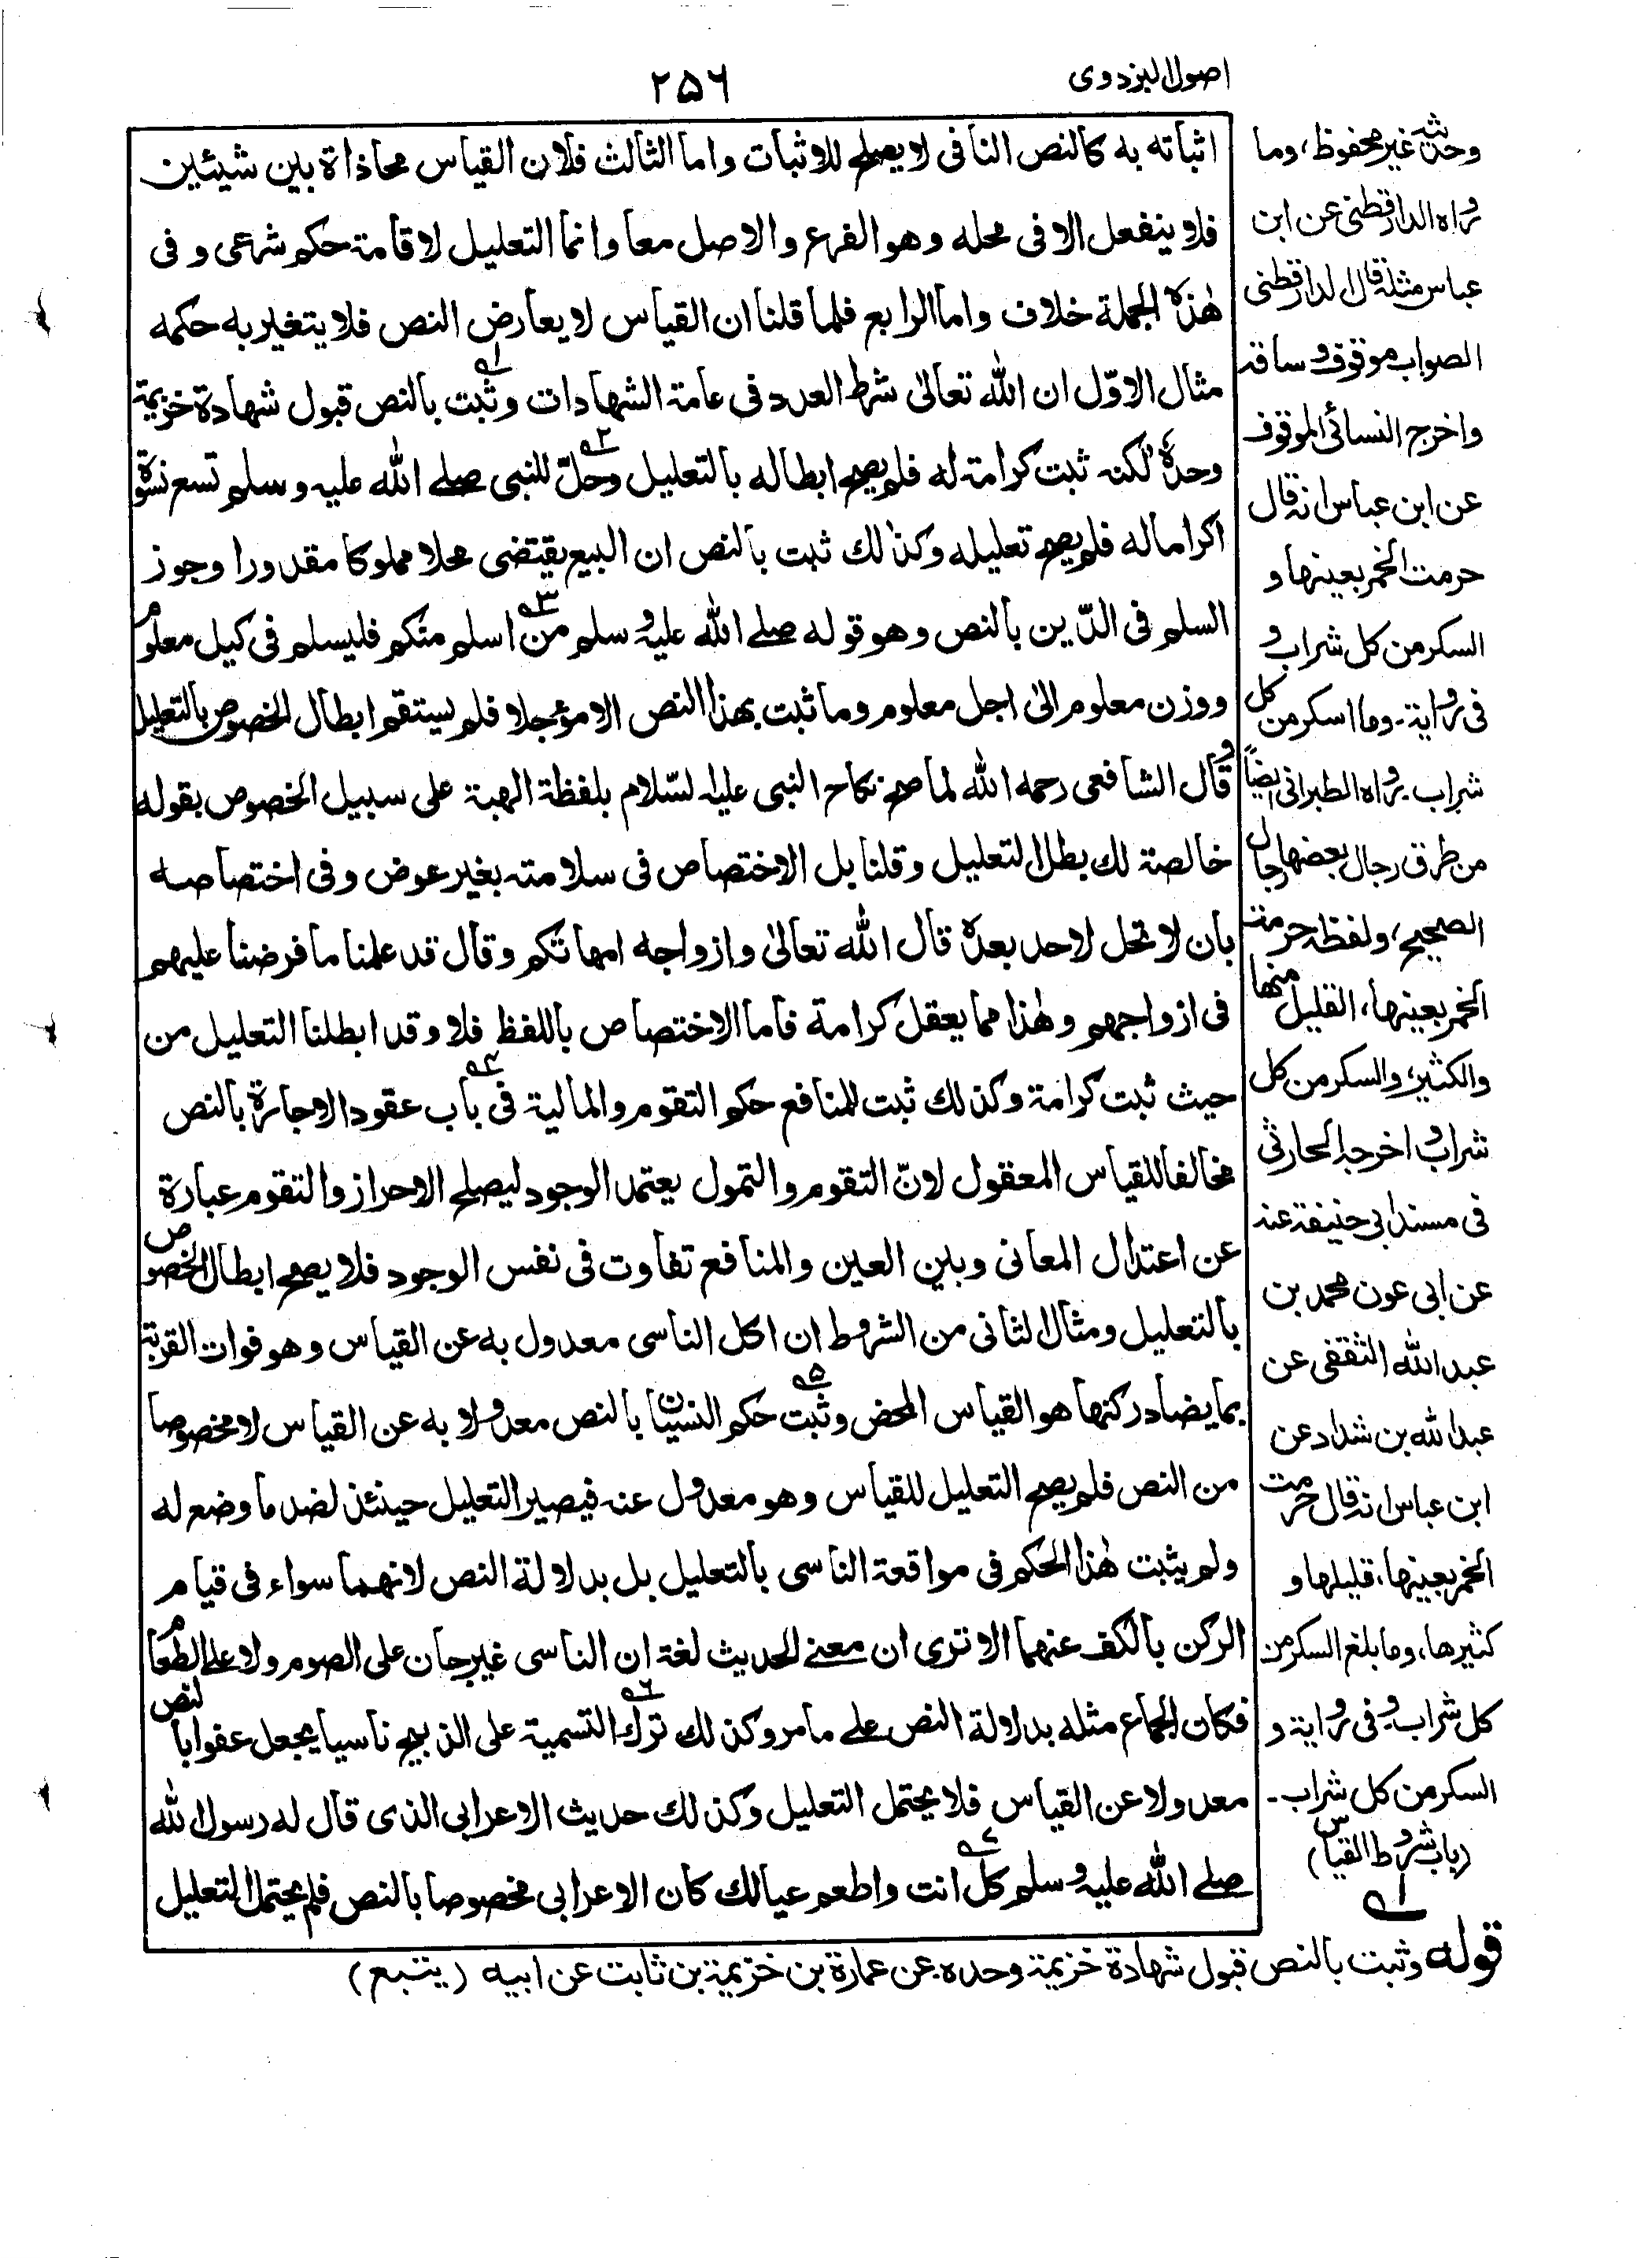 اصول البزدوی
۲۵۶
اثباته به كالنص النافى لا يصلح للاثبات واما الثالث فلان القياس محاذاة بين شيئين
فلا ينفعل الا فى محله وهو الفرع والاصل معا وانما التعليل لاقامة حكم شرعى و فى
هٰذه الجملة خلاف واما الرابع فلما قلنا ان القياس لا يعارض النص فلا يتغير به حكمه
مثال الاوّل ان الله تعالىٰ شرط العدد فى عامة الشهادات وثبت۱ بالنص قبول شهادة خزيمة
وحده لكنه ثبت كرامة له فلم يصح ابطاله بالتعليل وحلّ۲ للنبى صلے الله عليه وسلم تسع نسوة
اكراما له فلم يصح تعليله وكذٰلك ثبت بالنص ان البيع يقتضى محلا مملوكا مقدورا وجوز
السلم فى الدّين بالنص وهو قوله صلے الله عليه وسلم من۳ اسلم منكم فليسلم فى كيل معلوم
ووزن معلوم الىٰ اجل معلوم وما ثبت بهذا النص الا مؤجلا فلم يستقم ابطال الخصوص بالتعليل
وقال الشافعى رحمه الله لما صح نكاح النبى عليه السّلام بلفظة الهبة على سبيل الخصوص بقوله
خالصة لك بطل التعليل وقلنا بل الاختصاص فى سلامته بغير عوض وفى اختصاصه
بان لا تحل لاحد بعده قال الله تعالىٰ وازواجه امهاتكم وقال قد علمنا ما فرضنا عليهم
فى ازواجهم وهٰذا مما يعقل كرامة فاما الاختصاص باللفظ فلا وقد ابطلنا التعليل من
حيث ثبت كرامة وكذلك ثبت للمنافع حكم التقوم والمالية فى۴ باب عقود الاجارة بالنص
مخالفا للقياس المعقول لانّ التقوم والتمول يعتمد الوجود ليصلح الاحراز والتقوم عبارة
عن اعتدال المعانى وبين العين والمنافع تفاوت فى نفس الوجود فلا يصح ابطال الخصوص
بالتعليل ومثال الثانى من الشروط ان اكل الناسى معدول به عن القياس وهو فوات القربة
بما يضاد ركنها هو القياس المحض وثبت۵ حكم النسيان بالنص معدولا به عن القياس لا مخصوصا
من النص فلم يصح التعليل للقياس وهو معدول عنه فيصير التعليل حينئذ لضد ما وضع له
ولم يثبت هٰذا الحكم فى مواقعة الناسى بالتعليل بل بدلالة النص لانهما سواء فى قيام
الركن بالكف عنهما الا ترى ان معنے الحديث لغة ان الناسى غير جان على الصوم ولا على الطعام
فكان الجماع مثله بدلالة النص علے ما مر وكذلك ترك۶ التسمية على الذبيح ناسيا يجعل عفوا بالنص
معدولا عن القياس فلا يحتمل التعليل وكذلك حديث الاعرابى الذى قال له رسول الله
صلے الله عليه وسلم كل۷ انت واطعم عيالك كان الاعرابى مخصوصا بالنص فلم يحتمل التعليل
وحديثه غير محفوظ، وما
رواه الدارقطنى عن ابن
عباس مثله قال الدارقطنى
الصواب موقوف وساقه
واخرج النسائى الموقوف
عن ابن عباس انه قال
حرمت الخمر بعينها و
السكر من كل شراب و
فى رواية۔ وما اسكر من كل
شراب۔ ورواه الطبرانى ايضاً
من طرق رجال بعضها رجال
الصحيح، ولفظه حرمت
الخمر بعينها، القليل منها
والكثير، والسكر من كل
شراب واخرجه الحارثى
فى مسند ابى حنيفة عنه
عن ابى عون محمد بن
عبد الله الثقفى عن
عبد الله بن شداد عن
ابن عباس انه قال حرمت
الخمر بعينها، قليلها و
كثيرها، وما بلغ السكر من
كل شراب۔ وفى رواية و
السكر من كل شراب۔
(باب شروط القياس)
۱
قوله وثبت بالنص قبول شهادة خزيمة وحده۔ عن عمارة بن خزيمة بن ثابت عن ابيه (يتبع)